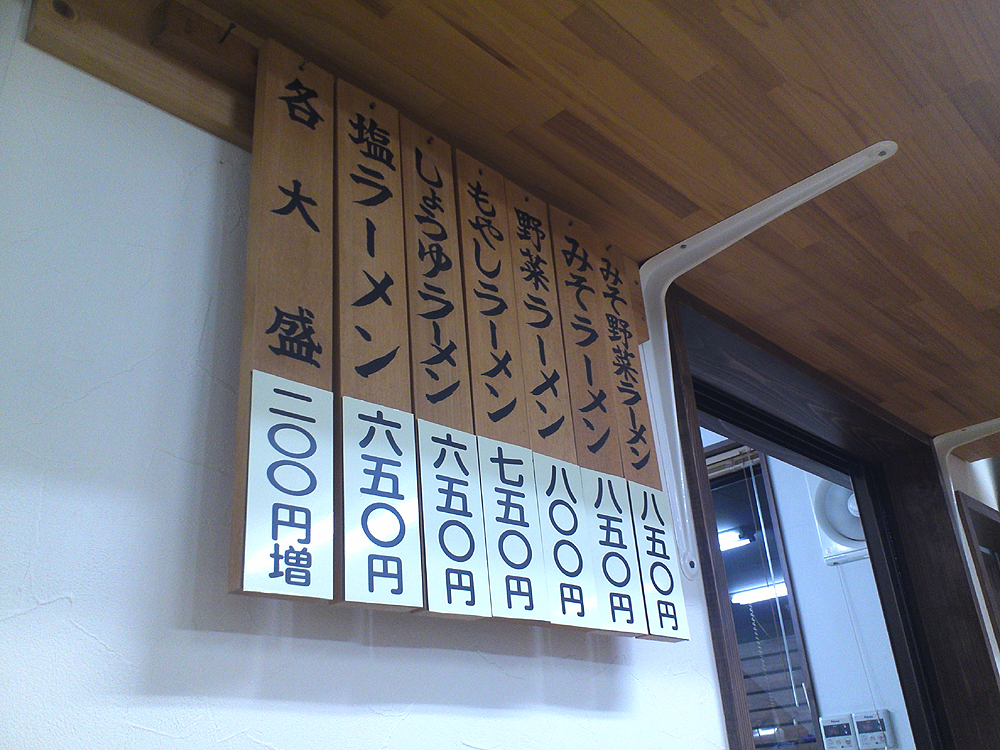 みそ野菜ラーメン 八五〇円
みそラーメン 八五〇円
野菜ラーメン 八〇〇円
もやしラーメン 七五〇円
しょうゆラーメン 六五〇円
塩ラーメン 六五〇円
各大盛 二〇〇円増